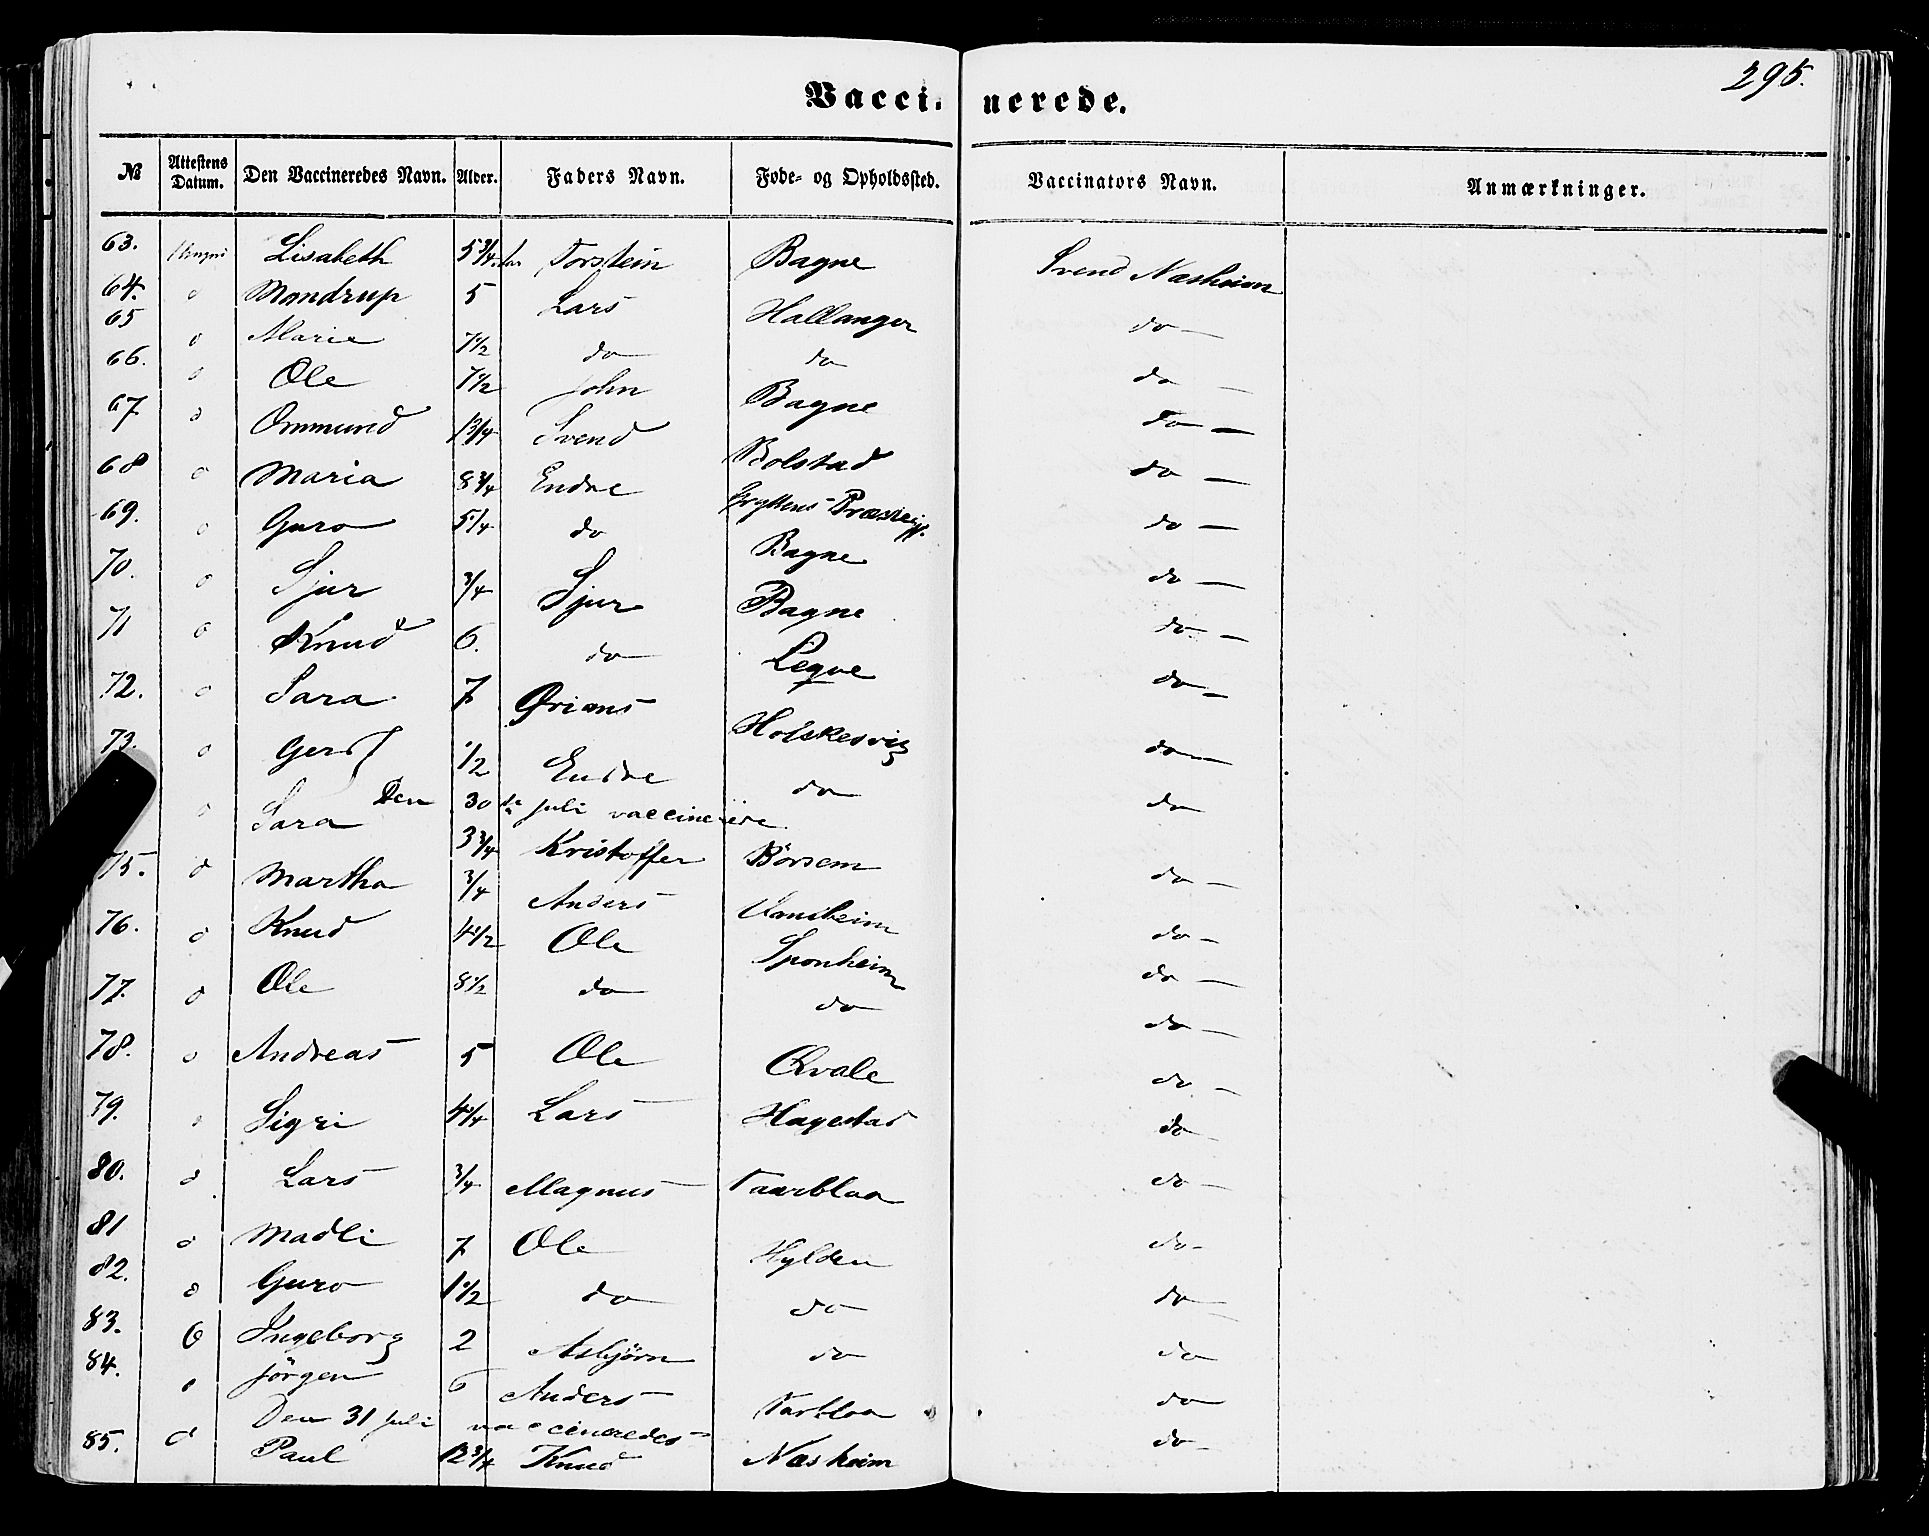 295.
Vaccinerede.
№ Attestens Datum. Den Vaccineredes Navn. Alder. Faders Navn. Føde- og Opholdssted. Vaccinators Navn. Anmærkninger.
63. Lisabeth 5 3/4 Torstein Bagne Svend Næsheim
64. o Mandrup 5 Lars Hallanger do —
65 o Marie 7 1/2 do do do —
66. o Ole 7 1/2 John Bagne do —
67 o Ommund 1 3/4 Svend Bolstad do —
68 o Maria 8 3/4 Endre Gryttens Præstegj. do —
69. o Guro 5 1/4 do Bagne do —
70. o Sjur 3/4 Sjur Bagne do —
71 o Knud 6. do Leqve do —
72. o Sara 7 Ørians Holskesvig do —
73. o Gerd 1/2 Endre do do
Den 30 te Juli vaccinerede
o Sara 3 3/4 Kristoffer Börsem do —
75. o Martha 3/4 Anders do —
76. o Knud 4 1/2 Ole Sponheim do —
77. o Ole 8 1/2 do do do —
78. o Andreas 5 Ole Qvale do —
79. o Sigri 4 1/4 Lars Hagestad do
80. o Lars 3/4 Magnus Taarblaa do —
81 o Madli 7 Ole Hylden do —
82. o Guro 1 1/2 do do do
83. o Ingeborg 2 Asbjørn do do
84. o Jörgen 6 Anders Tarblaa do
Den 31 Juli vaccineredes
85. o Paul 12 3/4 Knud Næsheim do —